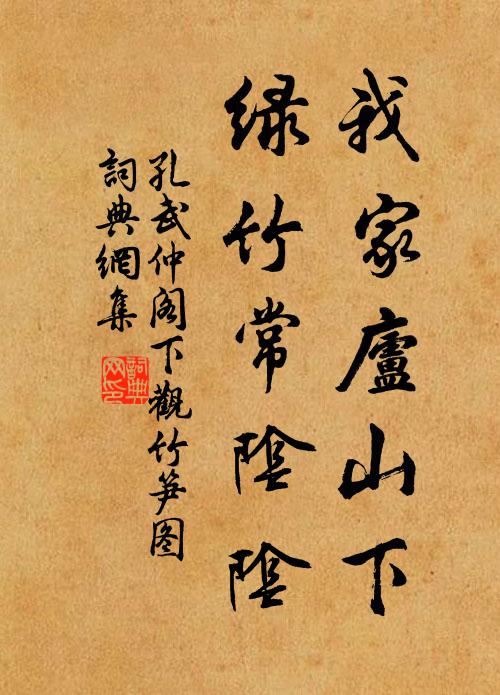 我家廬山下
绿竹常陰陰
孔武仲阁下觀竹笋图
詞典網集
詞典
网印